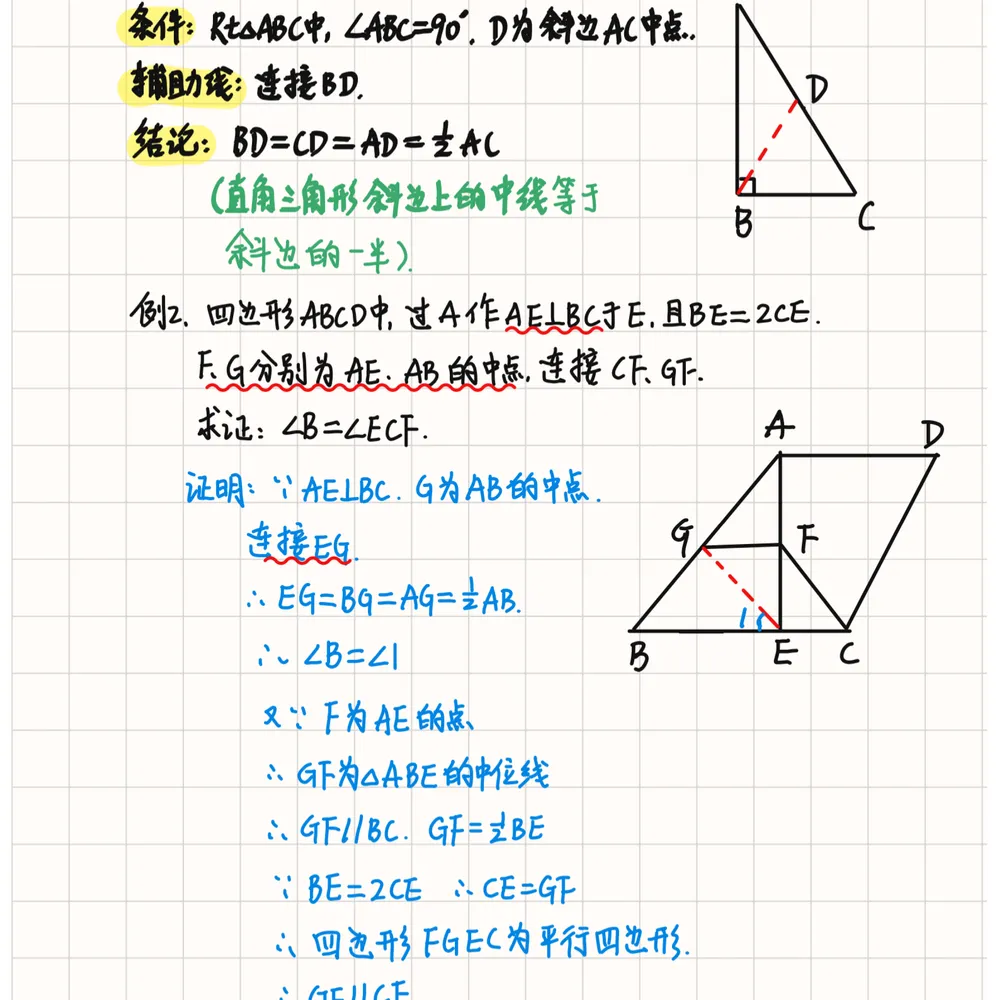 条件: Rt△ABC中, ∠ABC=90°. D为斜边AC中点.
辅助线: 连接BD.
结论: BD=CD=AD=½AC
(直角三角形斜边上的中线等于
斜边的一半).
D
B
C
例2. 四边形ABCD中, 过A作AE⊥BC于E, 且BE=2CE.
F、G分别为AE、AB的中点, 连接CF、GF.
求证: ∠B=∠ECF.
A
D
G
F
1
B
E
C
证明: ∵ AE⊥BC. G为AB的中点.
连接EG.
∴ EG=BG=AG=½AB.
∴ ∠B=∠1
又∵ F为AE的点
∴ GF为△ABE的中位线
∴ GF//BC. GF=½BE
∵ BE=2CE ∴ CE=GF
∴ 四边形FGEC为平行四边形.
∴ GE//CF